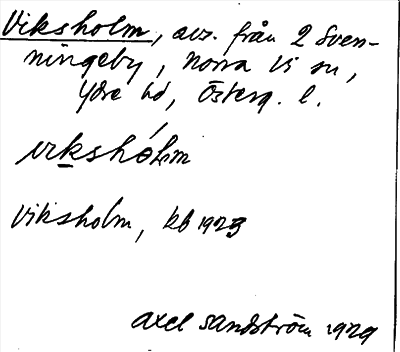 Viksholm, avs. från 2 Sven-
ningeby, Norra Vi sn,
Ydre hd, Österg. l.
vikshólm
Viksholm, kb 1923
Axel Sandström 1929